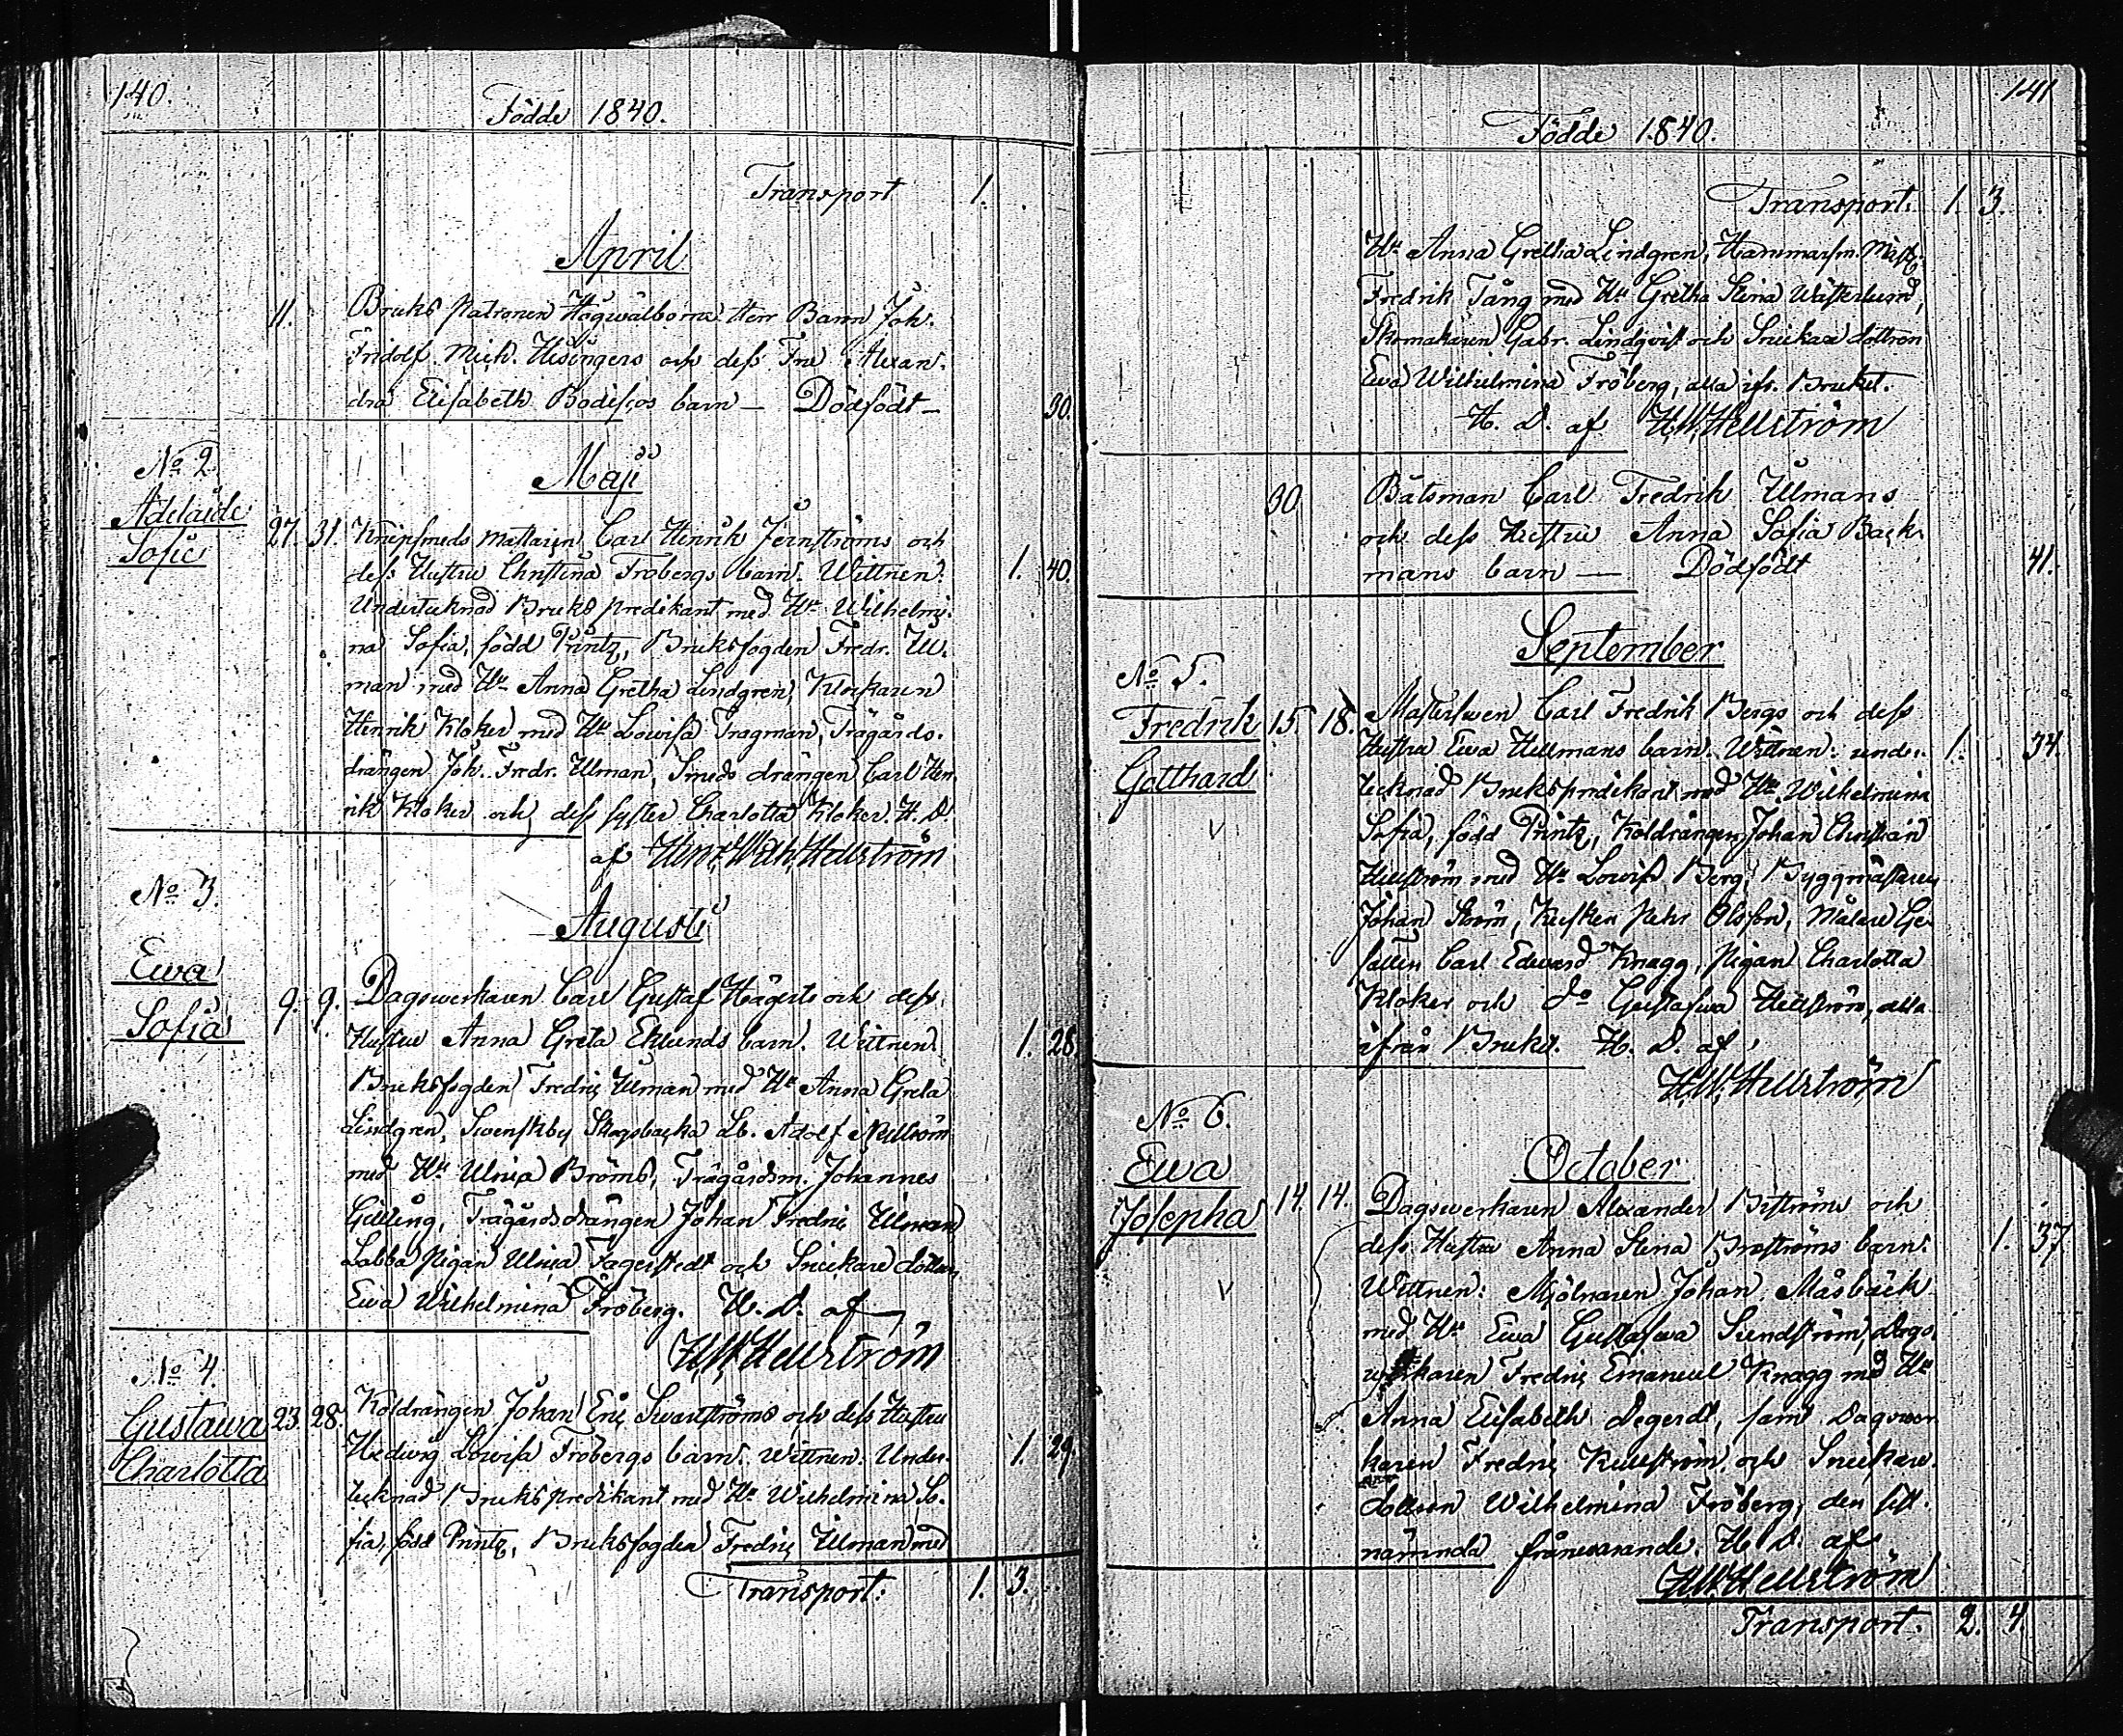 140.
Födde 1840.
Transport 1.
April
11. Bruks Patronen Högwälborne Herr Baron Joh.
Fridolf Mich. Hisingers och dess Fru Alexan-
dra Elisabeth Bodiscos barn — Dödfödt — 30.
No 2
Adelaide
Sofie
Maji
27. 31. Knipsmeds mästaren Carl Henrik Jernströms och
dess Hustru Christina Fröbergs barn. Wittnen: 1. 40.
Undertecknad Bruks predikant med Hu Wilhelmi-
na Sofia, född Printz, Bruksfogden Fredr. Ul-
man med Hu Anna Gretha Lindgren, Klockaren
Henrik Kloker med Hu Lowisa Tragman, Trägårds-
drängen Joh. Fredr. Ulman, Smeds drängen Carl Hen-
rik Kloker och dess syster Charlotta Kloker. H. D.
af Henr. Wilh. Hellström
No 3.
Ewa
Sofia
Augusti
9. 9. Dagswerkaren Carl Gustaf Hägerts och dess
Hustru Anna Greta Eklunds barn. Wittnen: 1. 28.
Bruksfogden Fredric Ulman med Hu Anna Greta
Lindgren, Swenskby Skogsbacka Lb. Adolf
med Hu Ulrica Broms, Trägårdsm. Johannes
Trägårdsdrängen Johan Fredric Ulman
Labba Pigan Ulrica Fagerstedt och Snickare dottren
Ewa Wilhelmina Fröberg. H. D. af
H.W. Hellström
No 4.
Gustawa
Charlotta
23. 28. Koldrängen Johan Eric Swartströms och dess Hustru
Hedwig Lowisa Fröbergs barn. Wittnen: Under- 1. 29.
tecknad Bruks predikant med Hu Wilhelmina So-
fia, född Printz, Bruksfogden Fredric Ulman med
Transport: 1. 3.
141
Födde 1840.
Transport: 1. 3.
Hu Anna Gretha Lindgren, Hammarsm. Mäst.
Fredrik Tång med Hu Gretha Stina Wästerlund,
Skomakaren Gabr. Lindqvist och Snickare dottren
Ewa Wilhelmina Fröberg, alla ifr. Bruket.
H. D. af H.W. Hellström
30 Båtsman Carl Fredrik Ulmans
och dess Hustru Anna Sofia Back-
mans barn — Dödfödt 41.
September
No 5.
Fredrik
Gotthard
15. 18. Mästerswen Carl Fredrik Bergs och dess
Hustru Ewa Hellmans barn. Wittnen: under- 1. 34.
tecknad Bruks predikant med Hu Wilhelmina
Sofia, född Printz, Koldrängen Johan Christian
Hellström med Hu Lowisa Berg, Byggmästaren
Johan Ström, Kusken Pehr Olsson, Målare Ge-
sällen Carl Edward Knagg, Pigan Charlotta
Kloker och do Gustafwa Hellström, alla
ifrån Bruket. H. D. af
H.W. Hellström
No 6.
Ewa
Josepha
October
14. 14. Dagswerkaren Alexander Biströms och
dess Hustru Anna Stina Broströms barn. 1. 37.
Wittnen: Mjölnaren Johan Måsbäck
med Hu Ewa Gustafwa Sundström, Dags-
werkaren Fredric Emanuel Knagg med Hu
Anna Elisabeth Degerdt, samt Dagswer-
karen Fredric Kullström och Snickare
dottren Wilhelmina Fröberg, den sist-
nämnda frånwarande. H. D. af
H.W. Hellström
Transport: 2. 4.